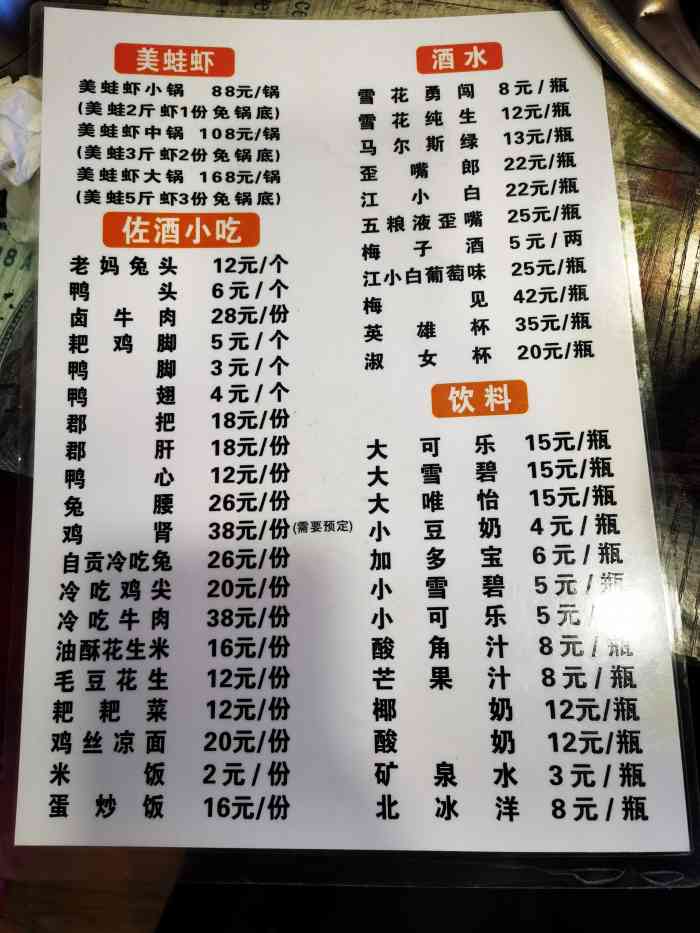 美蛙虾
美蛙虾小锅 88元/锅
(美蛙2斤虾1份免锅底)
美蛙虾中锅 108元/锅
(美蛙3斤虾2份免锅底)
美蛙虾大锅 168元/锅
(美蛙5斤虾3份免锅底)
佐酒小吃
老妈兔头 12元/个
鸭头 6元/个
卤牛肉 28元/份
耙鸡脚 5元/个
鸭脚 3元/个
鸭翅 4元/个
郡把 18元/份
郡肝 18元/份
鸭心 12元/份
兔腰 26元/份
鸡肾 38元/份(需要预定)
自贡冷吃兔 26元/份
冷吃鸡尖 20元/份
冷吃牛肉 38元/份
油酥花生米 16元/份
毛豆花生 12元/份
耙耙菜 12元/份
鸡丝凉面 20元/份
米饭 2元/份
蛋炒饭 16元/份
酒水
雪花勇闯 8元/瓶
雪花纯生 12元/瓶
马尔斯绿 13元/瓶
歪嘴郎 22元/瓶
江小白 22元/瓶
五粮液歪嘴 25元/瓶
梅子酒 5元/两
江小白葡萄味 25元/瓶
梅见 42元/瓶
英雄杯 35元/瓶
淑女杯 20元/瓶
饮料
大可乐 15元/瓶
大雪碧 15元/瓶
大唯怡 15元/瓶
小豆奶 4元/瓶
加多宝 6元/瓶
小雪碧 5元/瓶
小可乐 5元/瓶
酸角汁 8元/瓶
芒果汁 8元/瓶
椰奶 12元/瓶
酸奶 12元/瓶
矿泉水 3元/瓶
北冰洋 8元/瓶